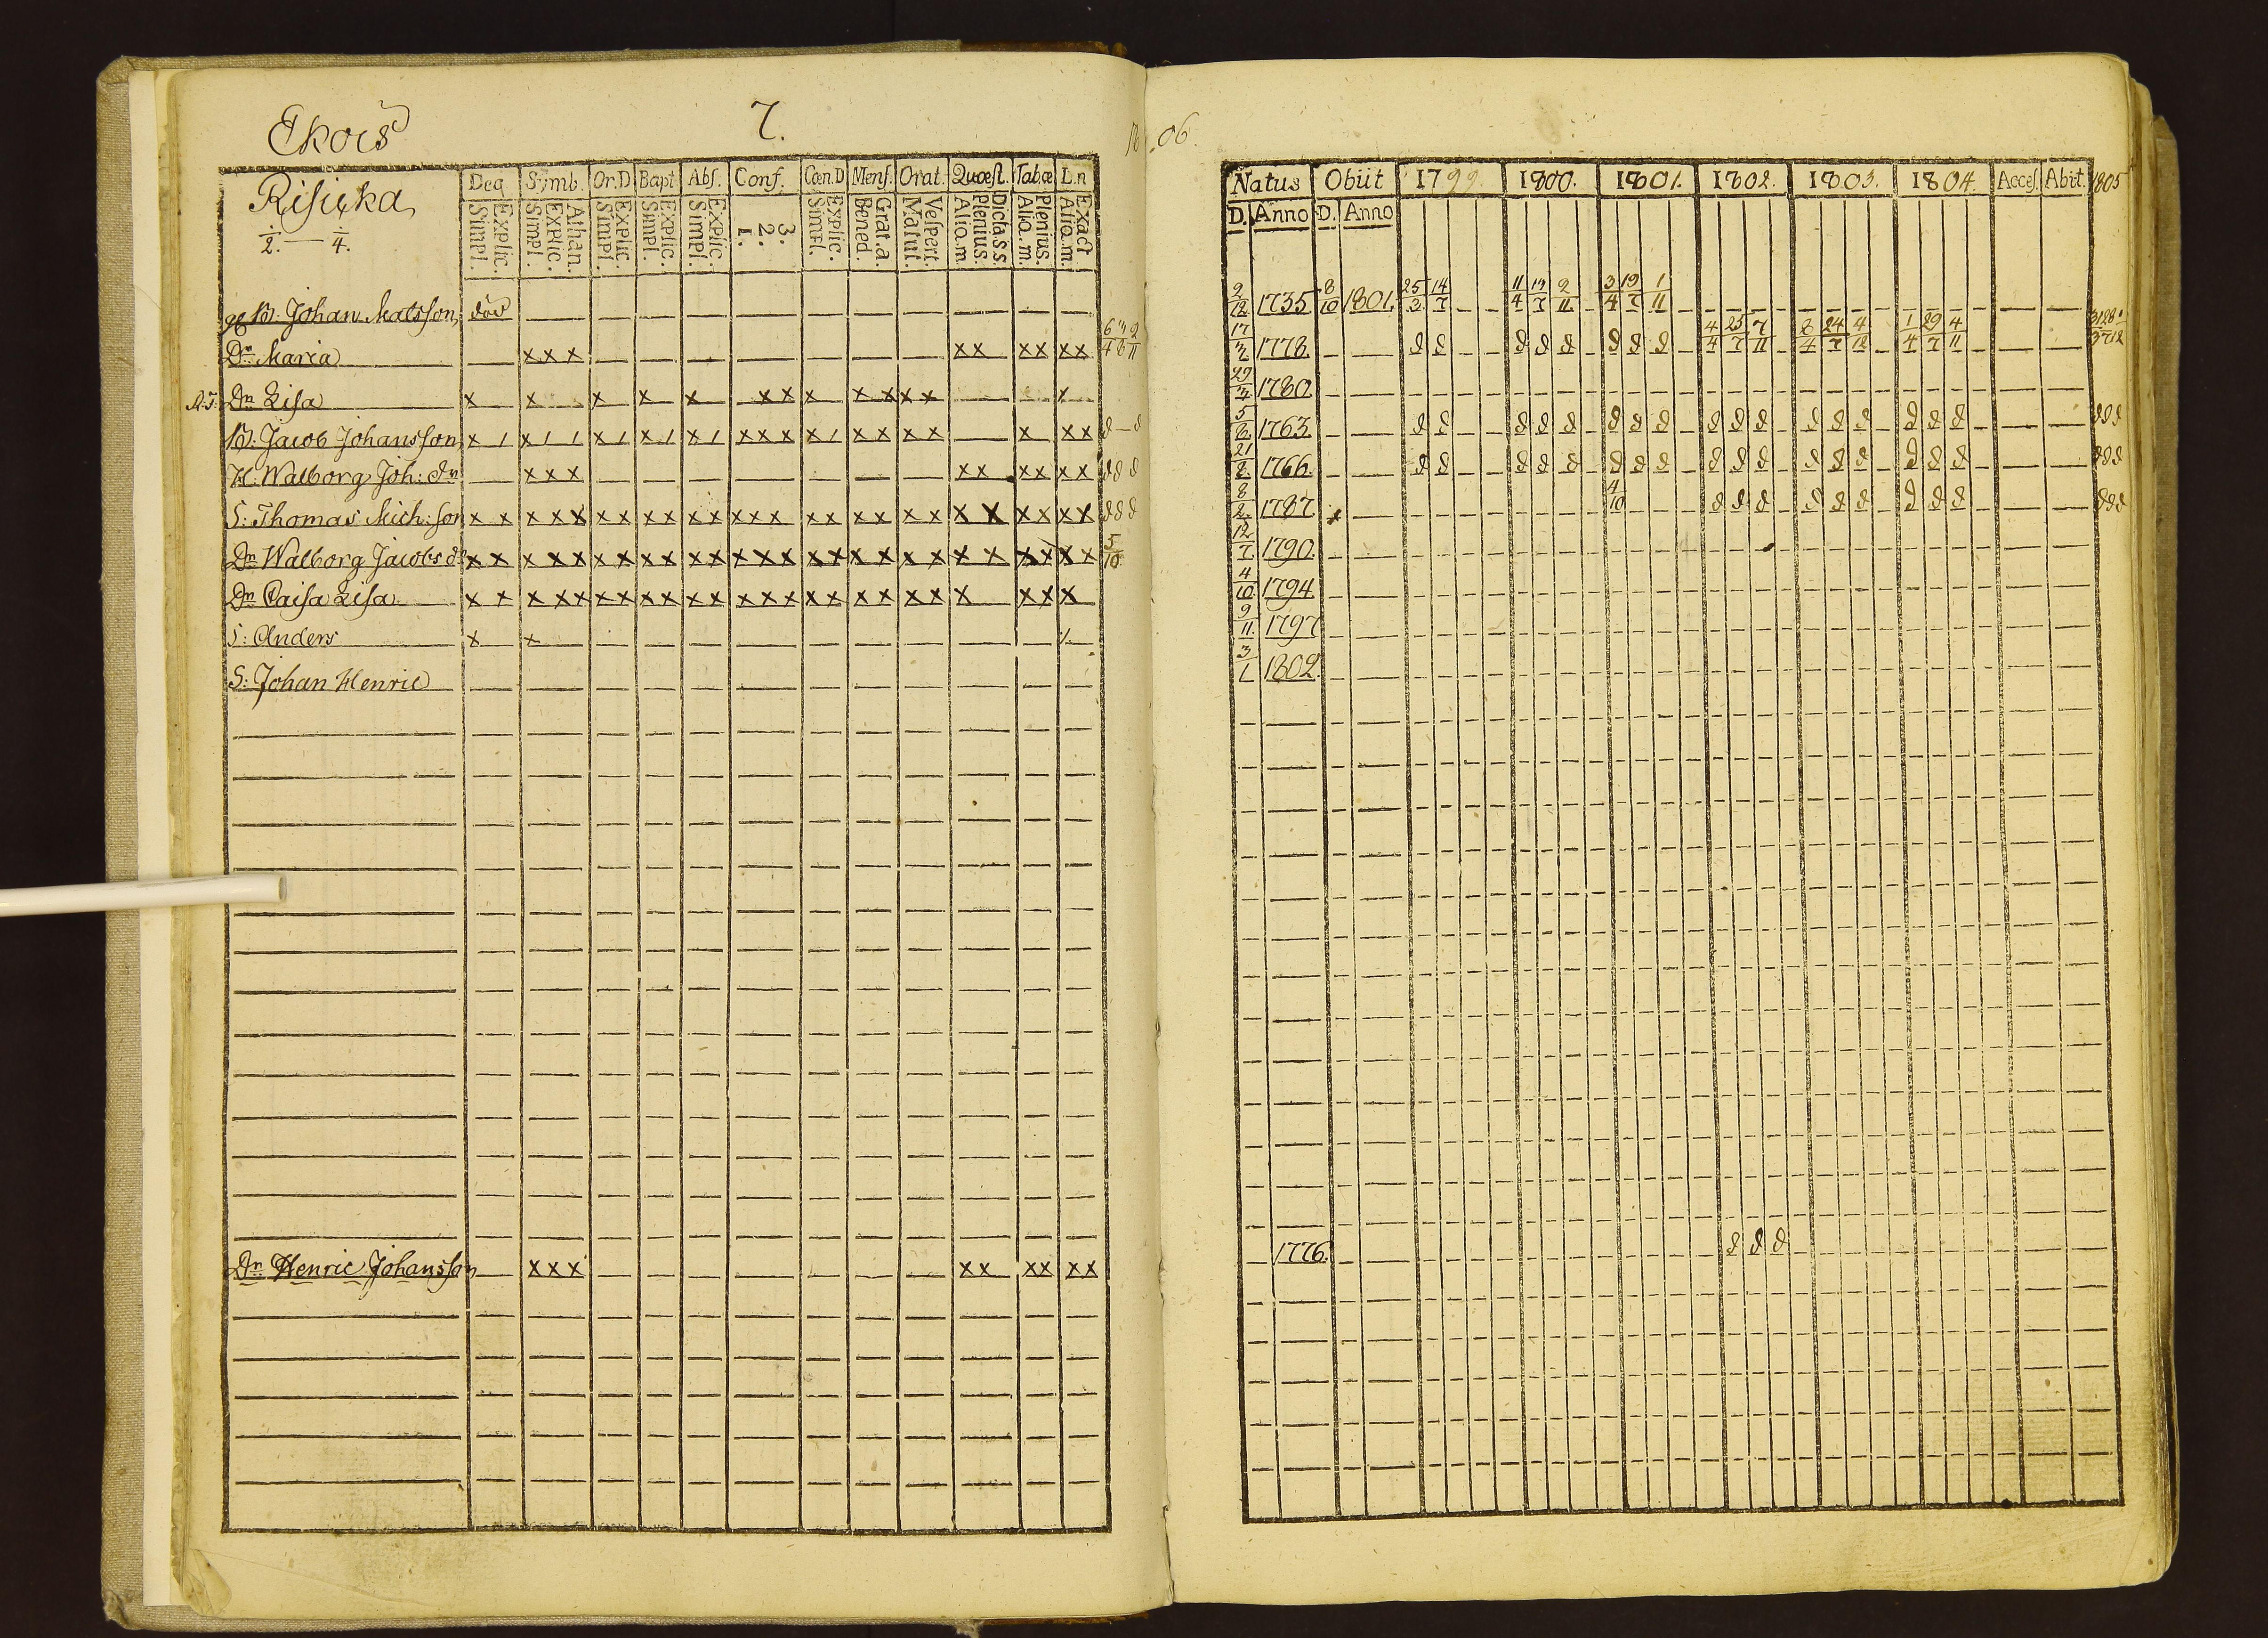 Ekois 7.
Risicka
1/2. — 1/4.
Deq Symb. Or.D Bapt Abs. Conf. Cœn.D Mens. Orat. Quæst. Tabæ L.n
Simpl. Explic. Simpl. Explic. Athan. Simpl. Explic. Simpl. Explic. Simpl. Explic. 1. 2. 3. Simpl. Explic. Bened. Grat.a. Matut. Vespert. Alio.m. Plenius. Diclass. Alio.m. Plenius. Alio.m. Exact
Johan Matsson död
Dr Maria x x x x x x x x x
Dn Lisa x x x x x x x x x x x x
B: Jacob Johansson x / x / / x / x / x / x x x x / x x x x x x x
H. Walborg Joh: dr x x x x x x x x x
S: Thomas Mich:son x x x x x x x x x x x x x x x x x x x x x x x x x x
Dn Walborg Jacobs dr x x x x x x x x x x x x x x x x x x x x x x x x x x
Dn Caisa Lisa x x x x x x x x x x x x x x x x x x x x x x x x
S: Anders x x
S: Johan Henric
Dn Henric Johansson x x x x x x x x x
06.
Natus Obiit 1799. 1800. 1801. 1802. 1803. 1804. Acces. Abit. 1805
D. Anno D. Anno
9/12 1735 8/10 1801. 25/3 14/7 11/4 19/7 2/11 3/4 19/7 1/11
17/7 1778. 4/4 25/7 7/11 8/4 24/7 4/12 1/4 29/7 4/11
29/7 1780.
5/8 1763.
21/8 1766.
8/2 1787 4/10
12/7 1790.
4/10 1794
9/11. 1797
3/1 1802.
1776.